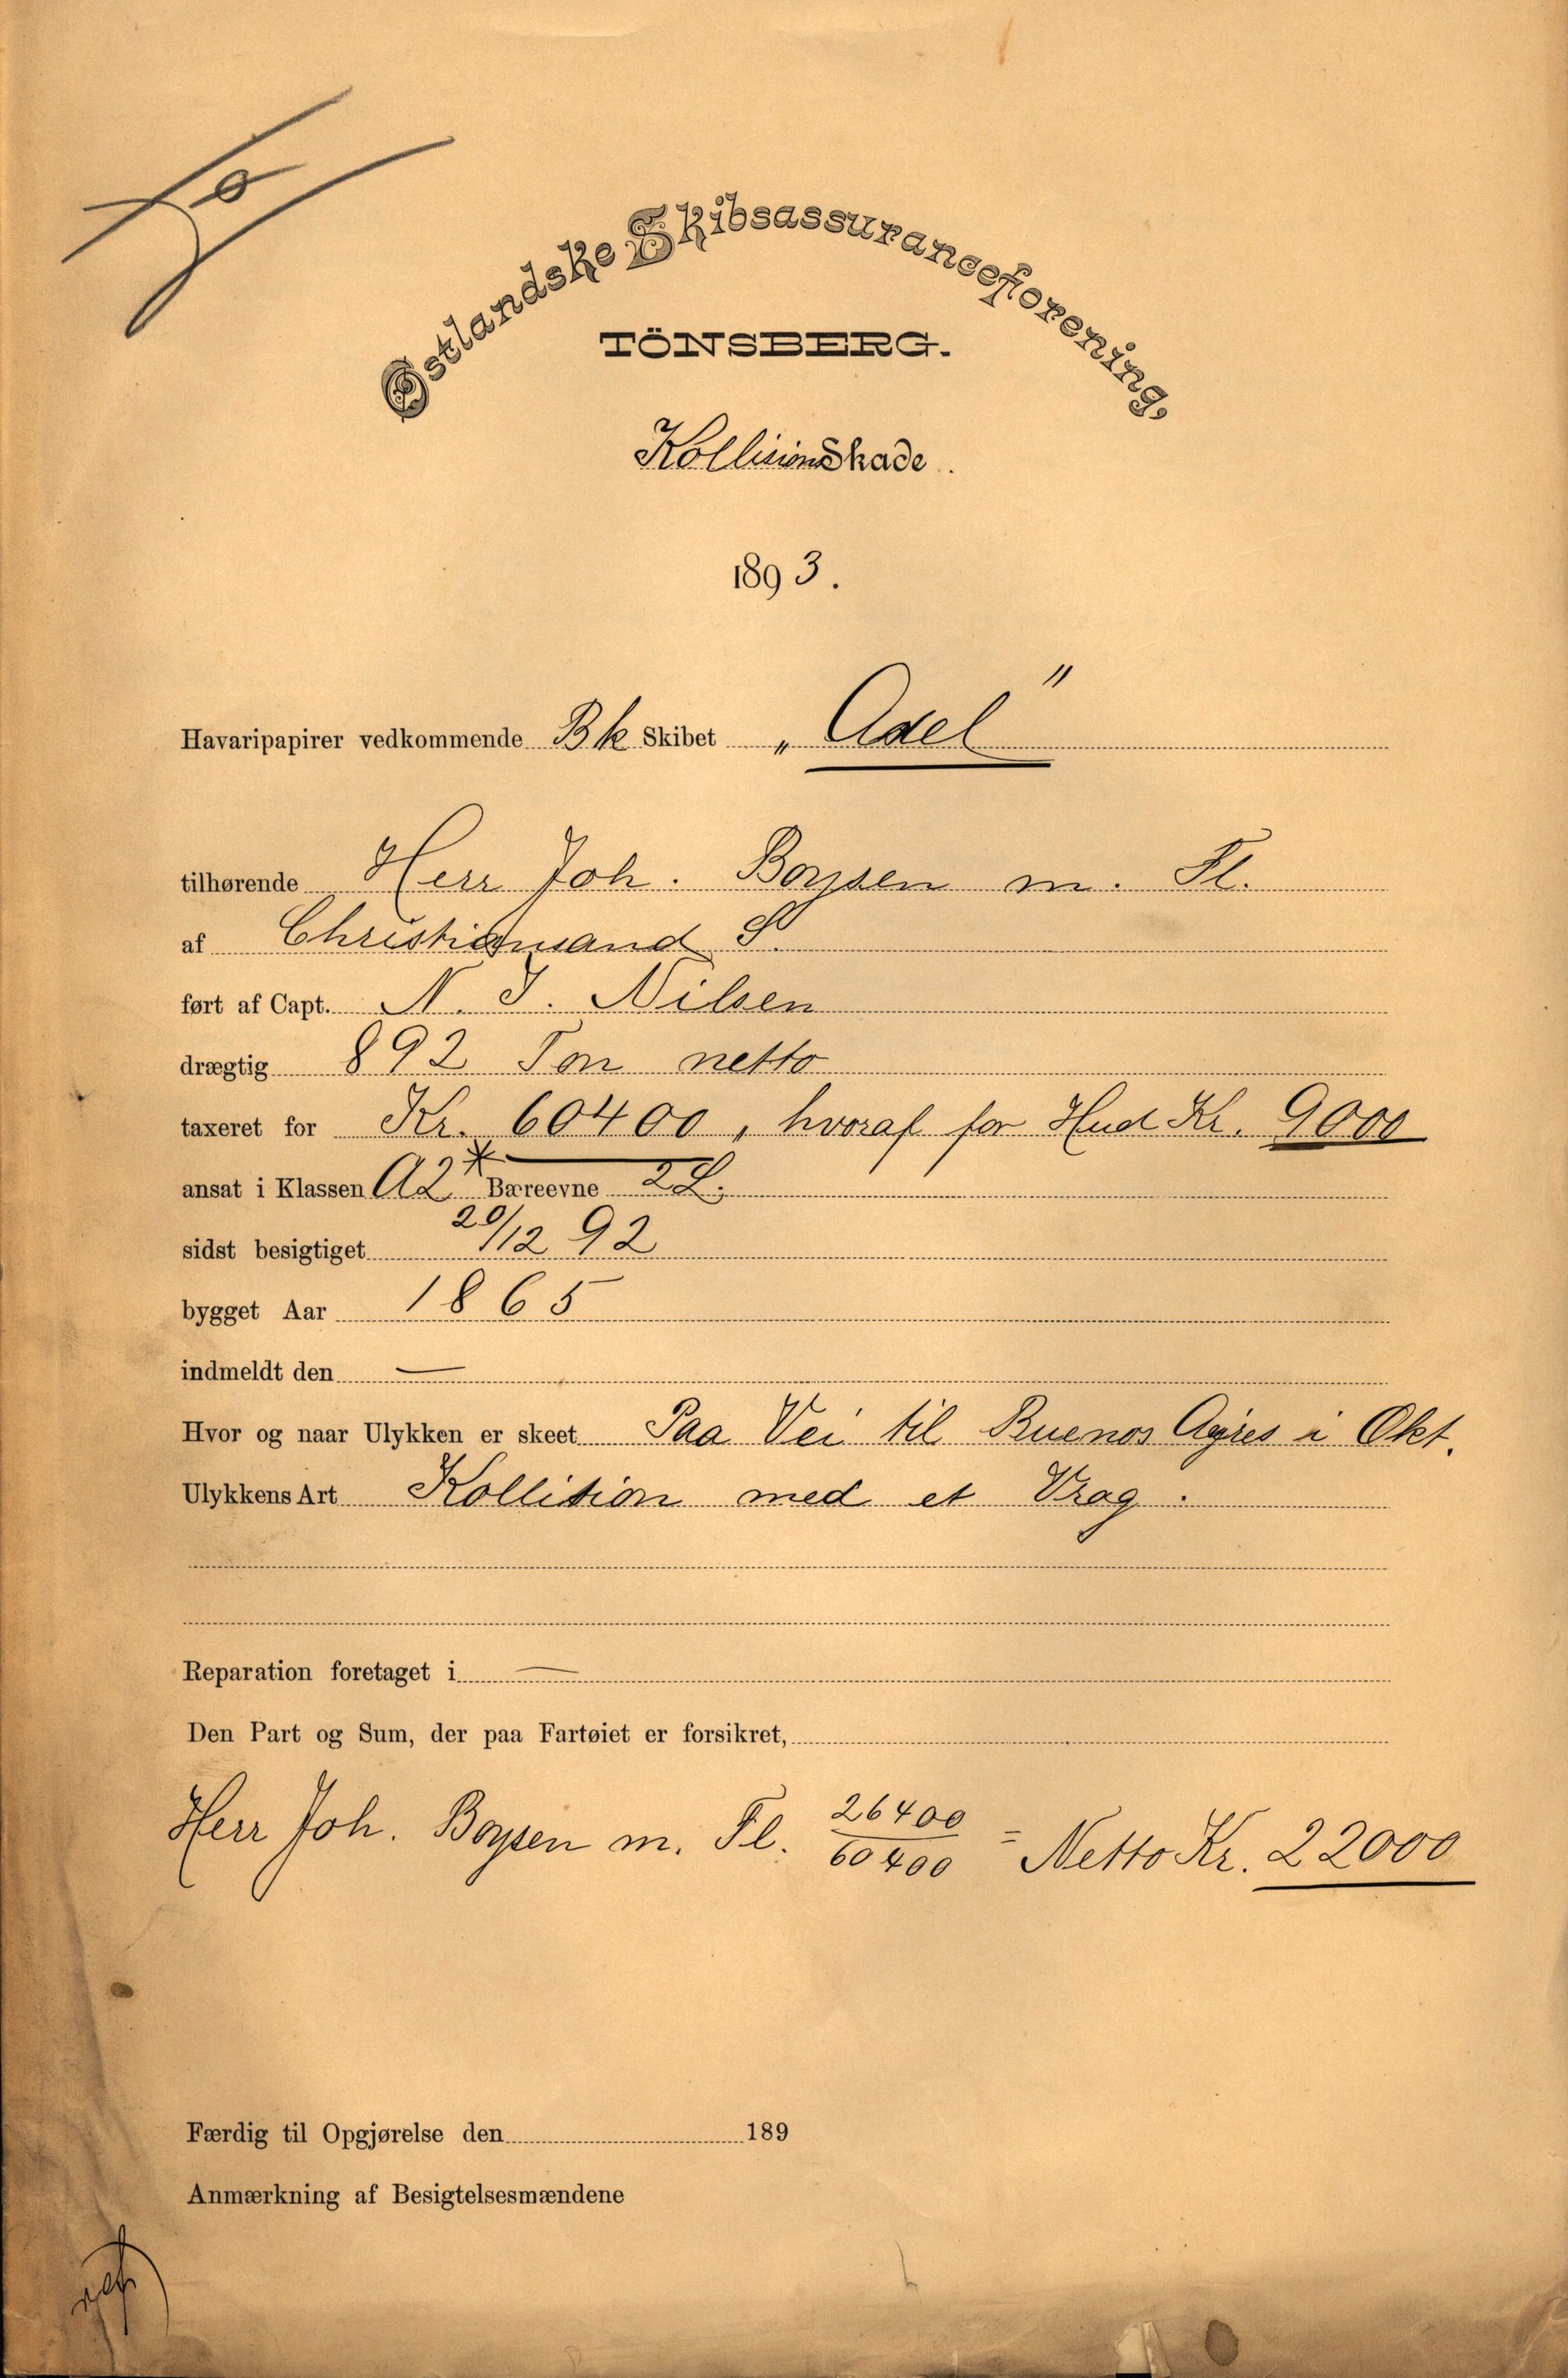 Østlandske Skibsassuranceforening,
TÖNSBERG.
KollisionsSkade.
1893.
Havaripapirer vedkommende Bk Skibet „Axel"
tilhørende Herr Joh. Boysen m. Fl.
af Christiansand S.
ført af Capt. N. J. Nilsen
drægtig 892 Ton netto
taxeret for Kr. 60400, hvoraf for Hud Kr. 9000
ansat i Klassen A2* Bæreevne 2L.
sidst besigtiget 20/12 92
bygget Aar 1865
indmeldt den —
Hvor og naar Ulykken er skeet Paa Vei til Buenos Ayres i Okt.
Ulykkens Art Kollision med et Vrag.
Reparation foretaget i —
Den Part og Sum, der paa Fartøiet er forsikret,
Herr Joh. Boysen m. Fl. 26400/60400 = Netto Kr. 22000
Færdig til Opgjørelse den 189
Anmærkning af Besigtelsesmændene